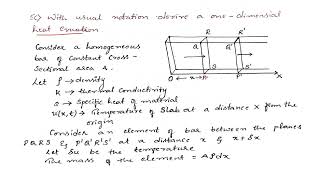 5c) With usual notation derive a one-dimensional
heat equation
Consider a homogeneous
bar of Constant Cross-
Sectional area A.
Let ρ → density
K → thermal Conductivity
σ → Specific heat of material
u(x,t) → Temperature of Slab at a distance x from the
origin
Consider an element of bar between the planes
PQRS & P'Q'R'S' at a distance x & x+δx
Let δu be the temperature
The mass of the element = Aρδx
R R'
Q Q'
S S'
P P'
O ← x → X